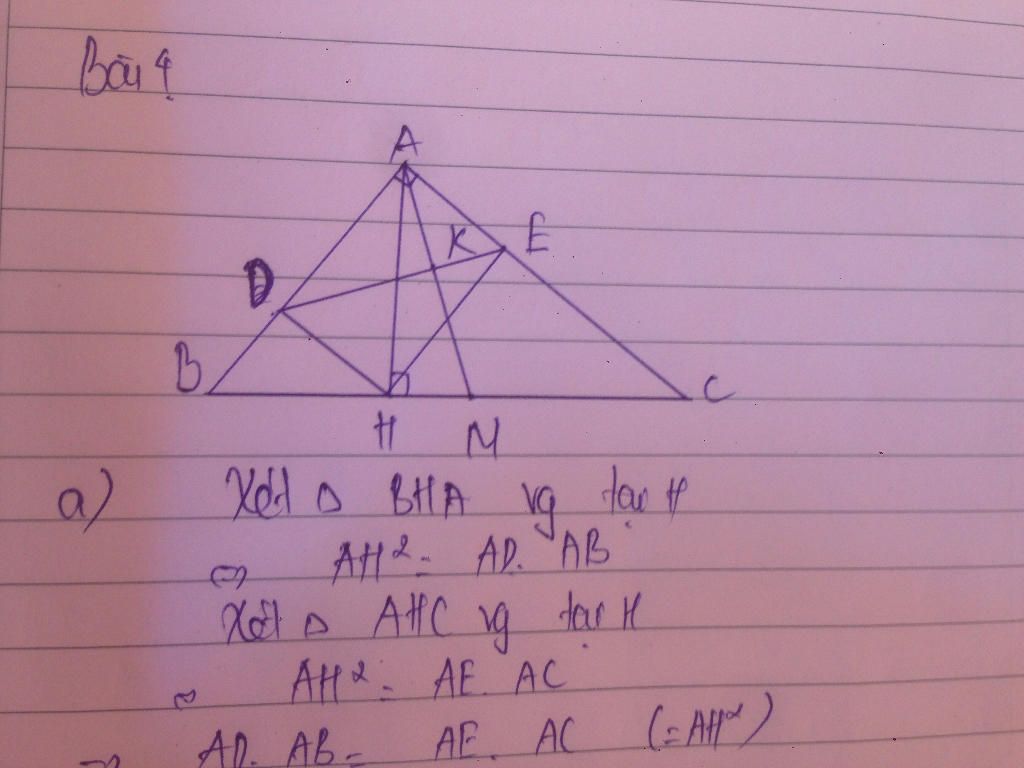 Bài 4
A
K E
D
B C
H M
a) Xét Δ BHA vg tại H
<=> AH² = AD. AB
Xét Δ AHC vg tại H
<=> AH² = AE. AC
=> AD. AB = AE. AC (=AH²)